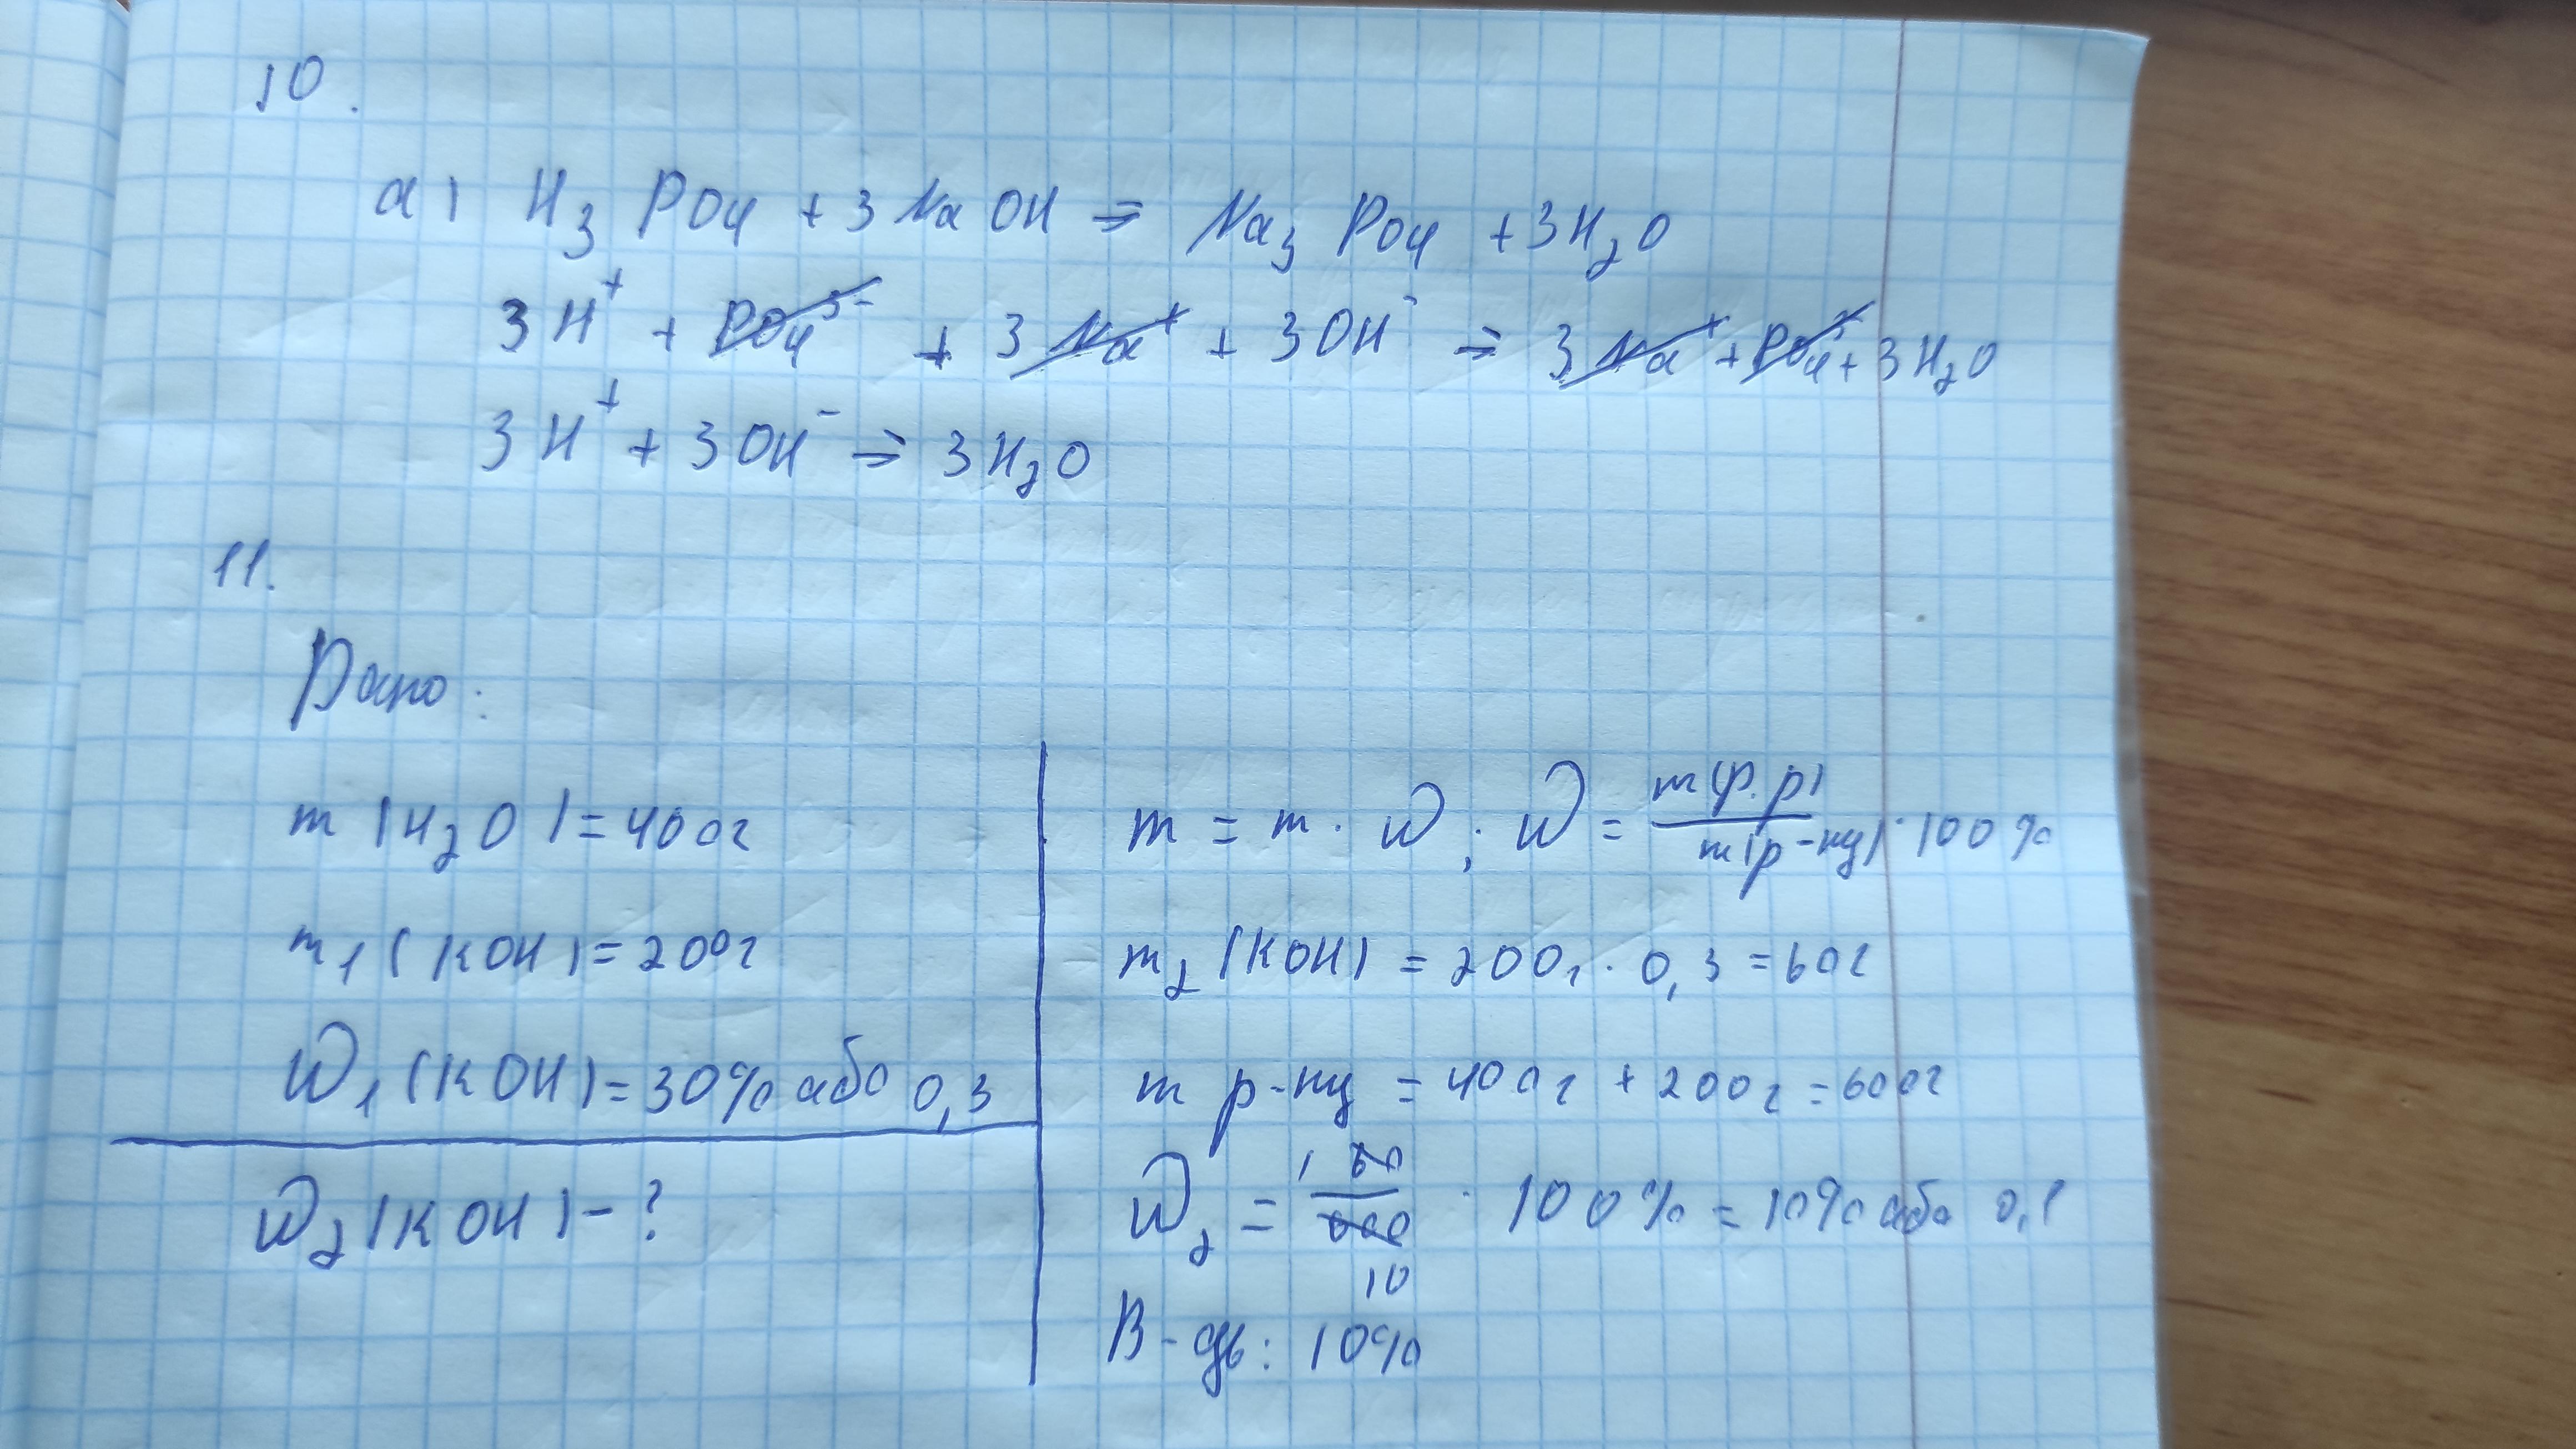 10.
а) H₃PO₄ + 3NaOH → Na₃PO₄ + 3H₂O
3H⁺ + PO₄³⁻ + 3Na⁺ + 3OH⁻ → 3Na⁺ + PO₄³⁻ + 3H₂O
3H⁺ + 3OH⁻ → 3H₂O
11.
Дано:
m(H₂O) = 400г
m₁(KOH) = 200г
W₁(KOH) = 30% або 0,3
W₂(KOH) - ?
m = m · W; W = m(р.р) / m(р-ну) · 100%
m₂(KOH) = 200г · 0,3 = 60г
m р-ну = 400г + 200г = 600г
W₂ = 60 / 600 · 100% = 10% або 0,1
1
10
В-дь: 10%